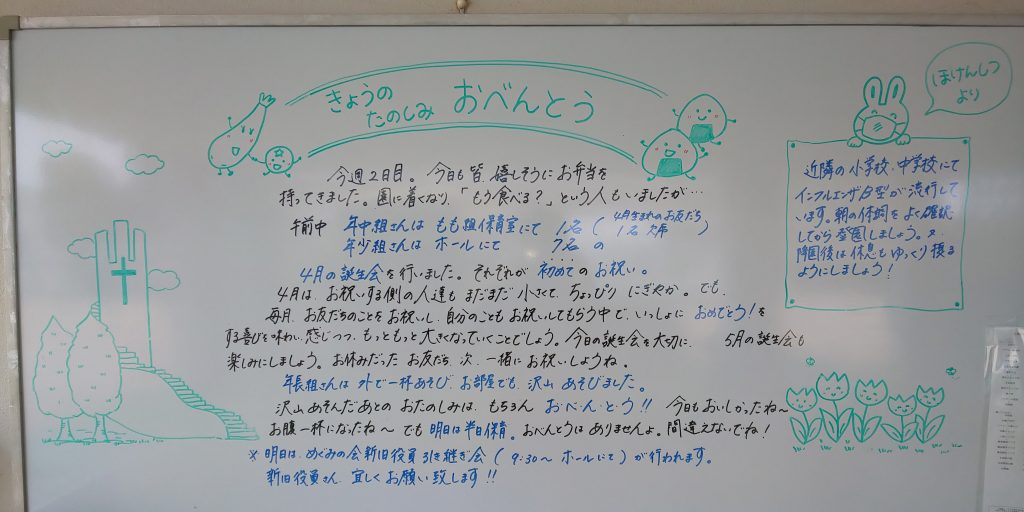 きょうの
たのしみ おべんとう
今週2日目。今日も皆 嬉しそうにお弁当を
持ってきました。園に着くなり、「もう食べる?」という人もいましたが…
午前中 年中組さんは もも組保育室にて 1名 (4月生まれのお友だち
1名 欠席)
年少組さんは ホールにて 7名 の
4月の誕生会を行いました。それぞれが 初めての お祝い。
4月は、お祝いする側の人達も まだまだ 小さくて、ちょっぴり にぎやか。でも、
毎月、お友だちのことをお祝いし、自分のことも お祝いしてもらう中で、いっしょに おめでとう!を
する喜びを味わい、感じつつ、もっともっと 大きくなっていくことでしょう。今日の誕生会を大切に、 5月の誕生会も
楽しみにしましょう。お休みだった お友だち、次、一緒に お祝いしようね。
年長組さんは 外で一杯あそび、お部屋でも、沢山 あそびました。
沢山 あそんだあとの おたのしみは、もちろん おべんとう!! 今日もおいしかったね〜
お腹一杯になったね〜 でも 明日は半日保育。おべんとうは ありませんよ。間違えないでね!
※ 明日は、めぐみの会新旧役員 引き継ぎ会 (9:30〜 ホールにて) が行われます。
新旧役員さん、宜しく お願い致します!!
ほけんしつ
より
近隣の小学校、中学校にて
インフルエンザB型が流行して
います。朝の体調をよく確認
してから登園しましょう。又、
降園後は休息もゆっくり摂る
ようにしましょう!